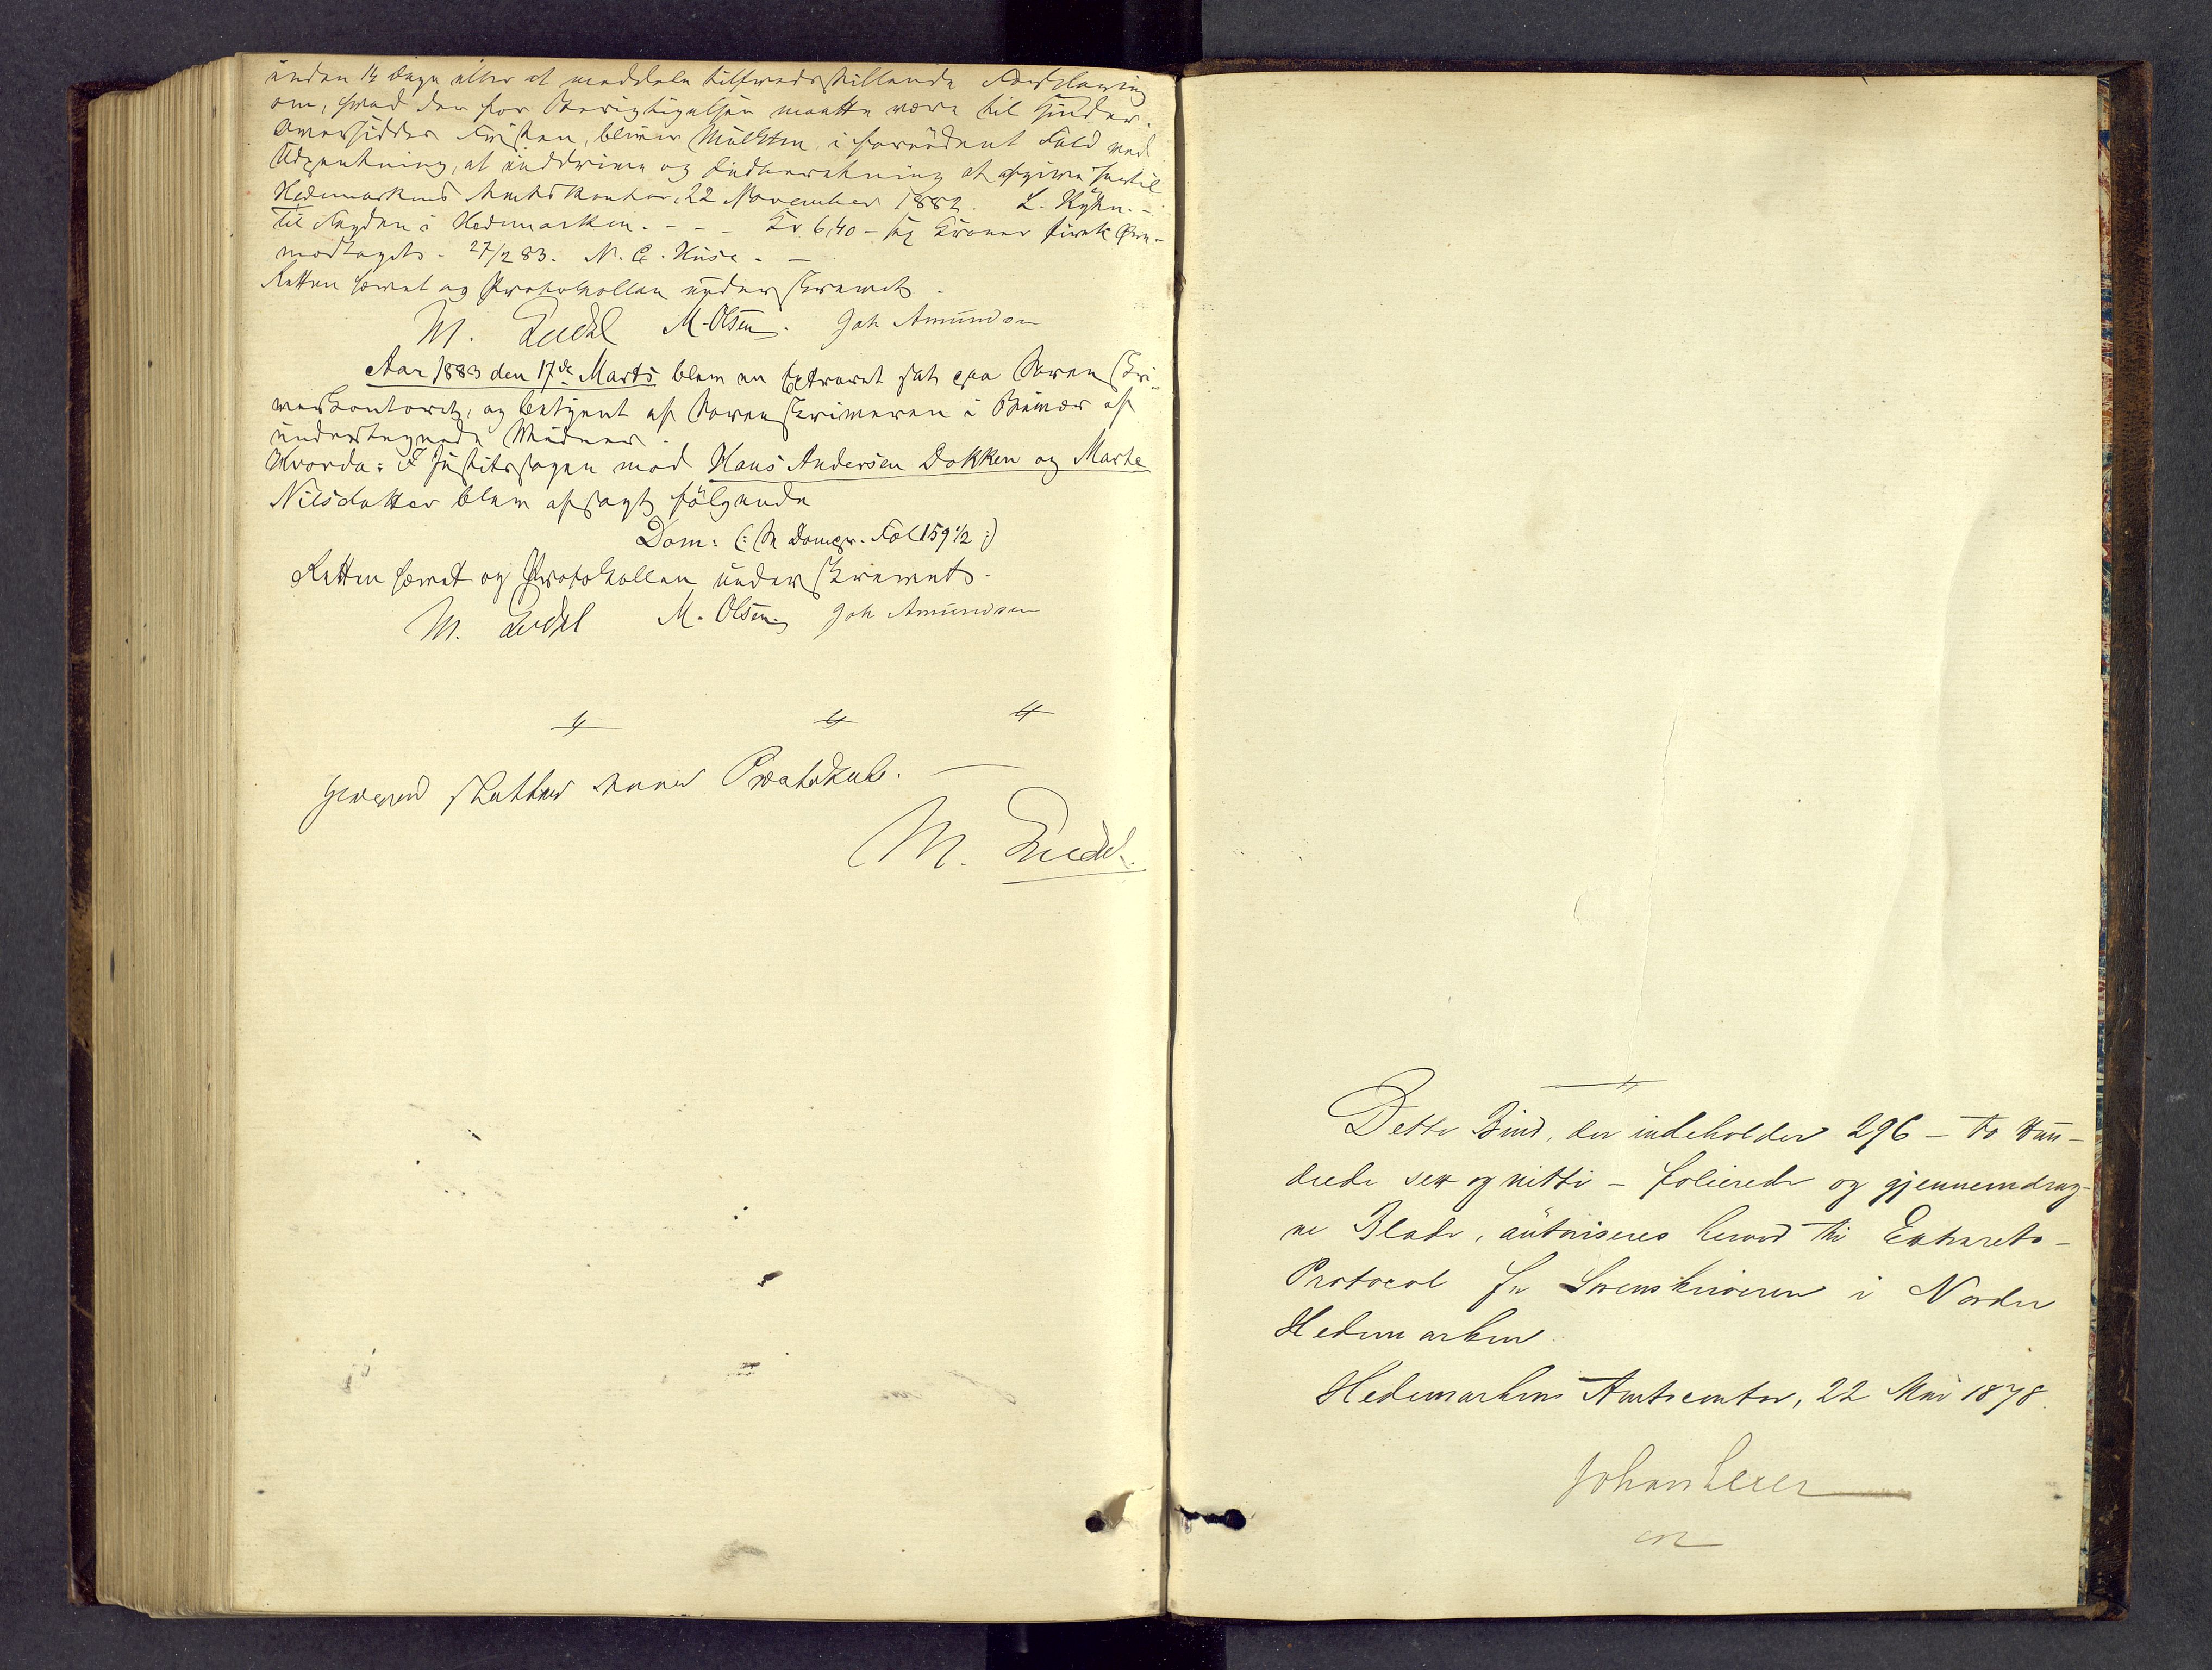 inden 14 Dage eller at meddele tilfredsstillende Forklaring
om, hvad der for Berigtigelsen maatte være til Hinder.
Oversiddes Fristen, bliver Mulkten, i fornødent Fald ved
Udpantning, at inddrive og Indberetning at afgive hertil
Hedemarkens Amtskontor, 22 November 1882. L. Kyhn. -
Til Fogden i Hedemarken. - - - Kr 6,40 - sex Kroner firti Øre -
modtaget. 27/2 83. N. C. Huse. -
Retten hævet og Protokollen underskrevet.
M. Ludel M. Olsen. Joh Amundsen
Aar 1883 den 17de Marts blev en Extraret sat paa Sorenskri-
verkontoret, og betjent af Sorenskriveren i Overvær af
undertegnede Vidner.
Hvorda: I Justitssagen mod Hans Andersen Dokken og Marte
Nilsdatter blev afsagt følgende
Dom: (: Se Domspr. Fol 159 1/2 :)
Retten hævet og Protokollen underskrevet.
M. Ludel M. Olsen. Joh Amundsen
Herved sluttes denne Protokol. -
M. Ludel.
Dette Bind, der indeholder 296 - to Hun-
drede sex og nitti - folierede og gjennemdrag-
ne Blade, autoriseres herved til Extrarets-
Protocol for Sorenskriveren i Nordre
Hedemarken
Hedemarkens Amtscontor, 22 Mai 1878.